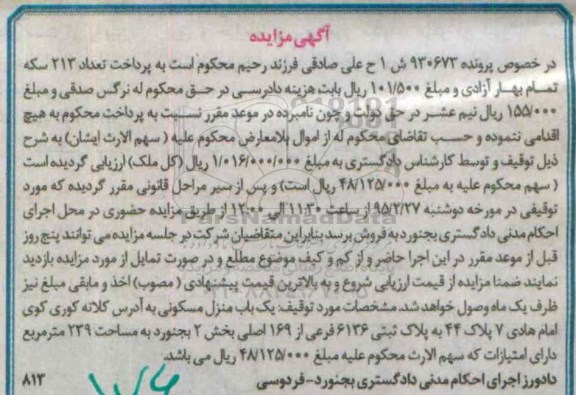 آگهی مزایده
در خصوص پرونده ۹۳۰۶۷۳ ش ۱ ح علی صادقی فرزند رحیم محکوم است به پرداخت تعداد ۲۱۳ سکه
تمام بهار آزادی و مبلغ ۱۰۱/۵۰۰ ریال بابت هزینه دادرسی در حق محکوم له نرگس صدقی و مبلغ
۱۵۵/۰۰۰ ریال نیم عشر در حق دولت و چون نامبرده در موعد مقرر نسبت به پرداخت محکوم به هیچ
اقدامی ننموده و حسب تقاضای محکوم له از اموال بلامعارض محکوم علیه ( سهم الارث ایشان) به شرح
ذیل توقیف و توسط کارشناس دادگستری به مبلغ ۱/۰۱۶/۰۰۰/۰۰۰ ریال (کل ملک) ارزیابی گردیده است
( سهم محکوم علیه به مبلغ ۴۸/۱۲۵/۰۰۰ ریال است) و پس از سیر مراحل قانونی مقرر گردیده که مورد
توقیفی در مورخه دوشنبه ۹۵/۲/۲۷ از ساعت ۱۱:۳۰ الی ۱۲:۰۰ از طریق مزایده حضوری در محل اجرای
احکام مدنی دادگستری بجنورد به فروش برسد بنابراین متقاضیان شرکت در جلسه مزایده می توانند پنج روز
قبل از موعد مقرر در این اجرا حاضر و از کم و کیف موضوع مطلع و در صورت تمایل از مورد مزایده بازدید
نمایند ضمنا مزایده از قیمت ارزیابی شروع و به بالاترین قیمت پیشنهادی ( مصوب) اخذ و مابقی مبلغ نیز
ظرف یک ماه وصول خواهد شد. مشخصات مورد توقیف: یک باب منزل مسکونی به آدرس کلاته کوری کوی
امام هادی ۷ پلاک ۴۴ به پلاک ثبتی ۶۱۳۶ فرعی از ۱۶۹ اصلی بخش ۲ بجنورد به مساحت ۲۳۹ مترمربع
دارای امتیازات که سهم الارث محکوم علیه مبلغ ۴۸/۱۲۵/۰۰۰ ریال می باشد.
دادورز اجرای احکام مدنی دادگستری بجنورد-فردوسی ۸۱۳